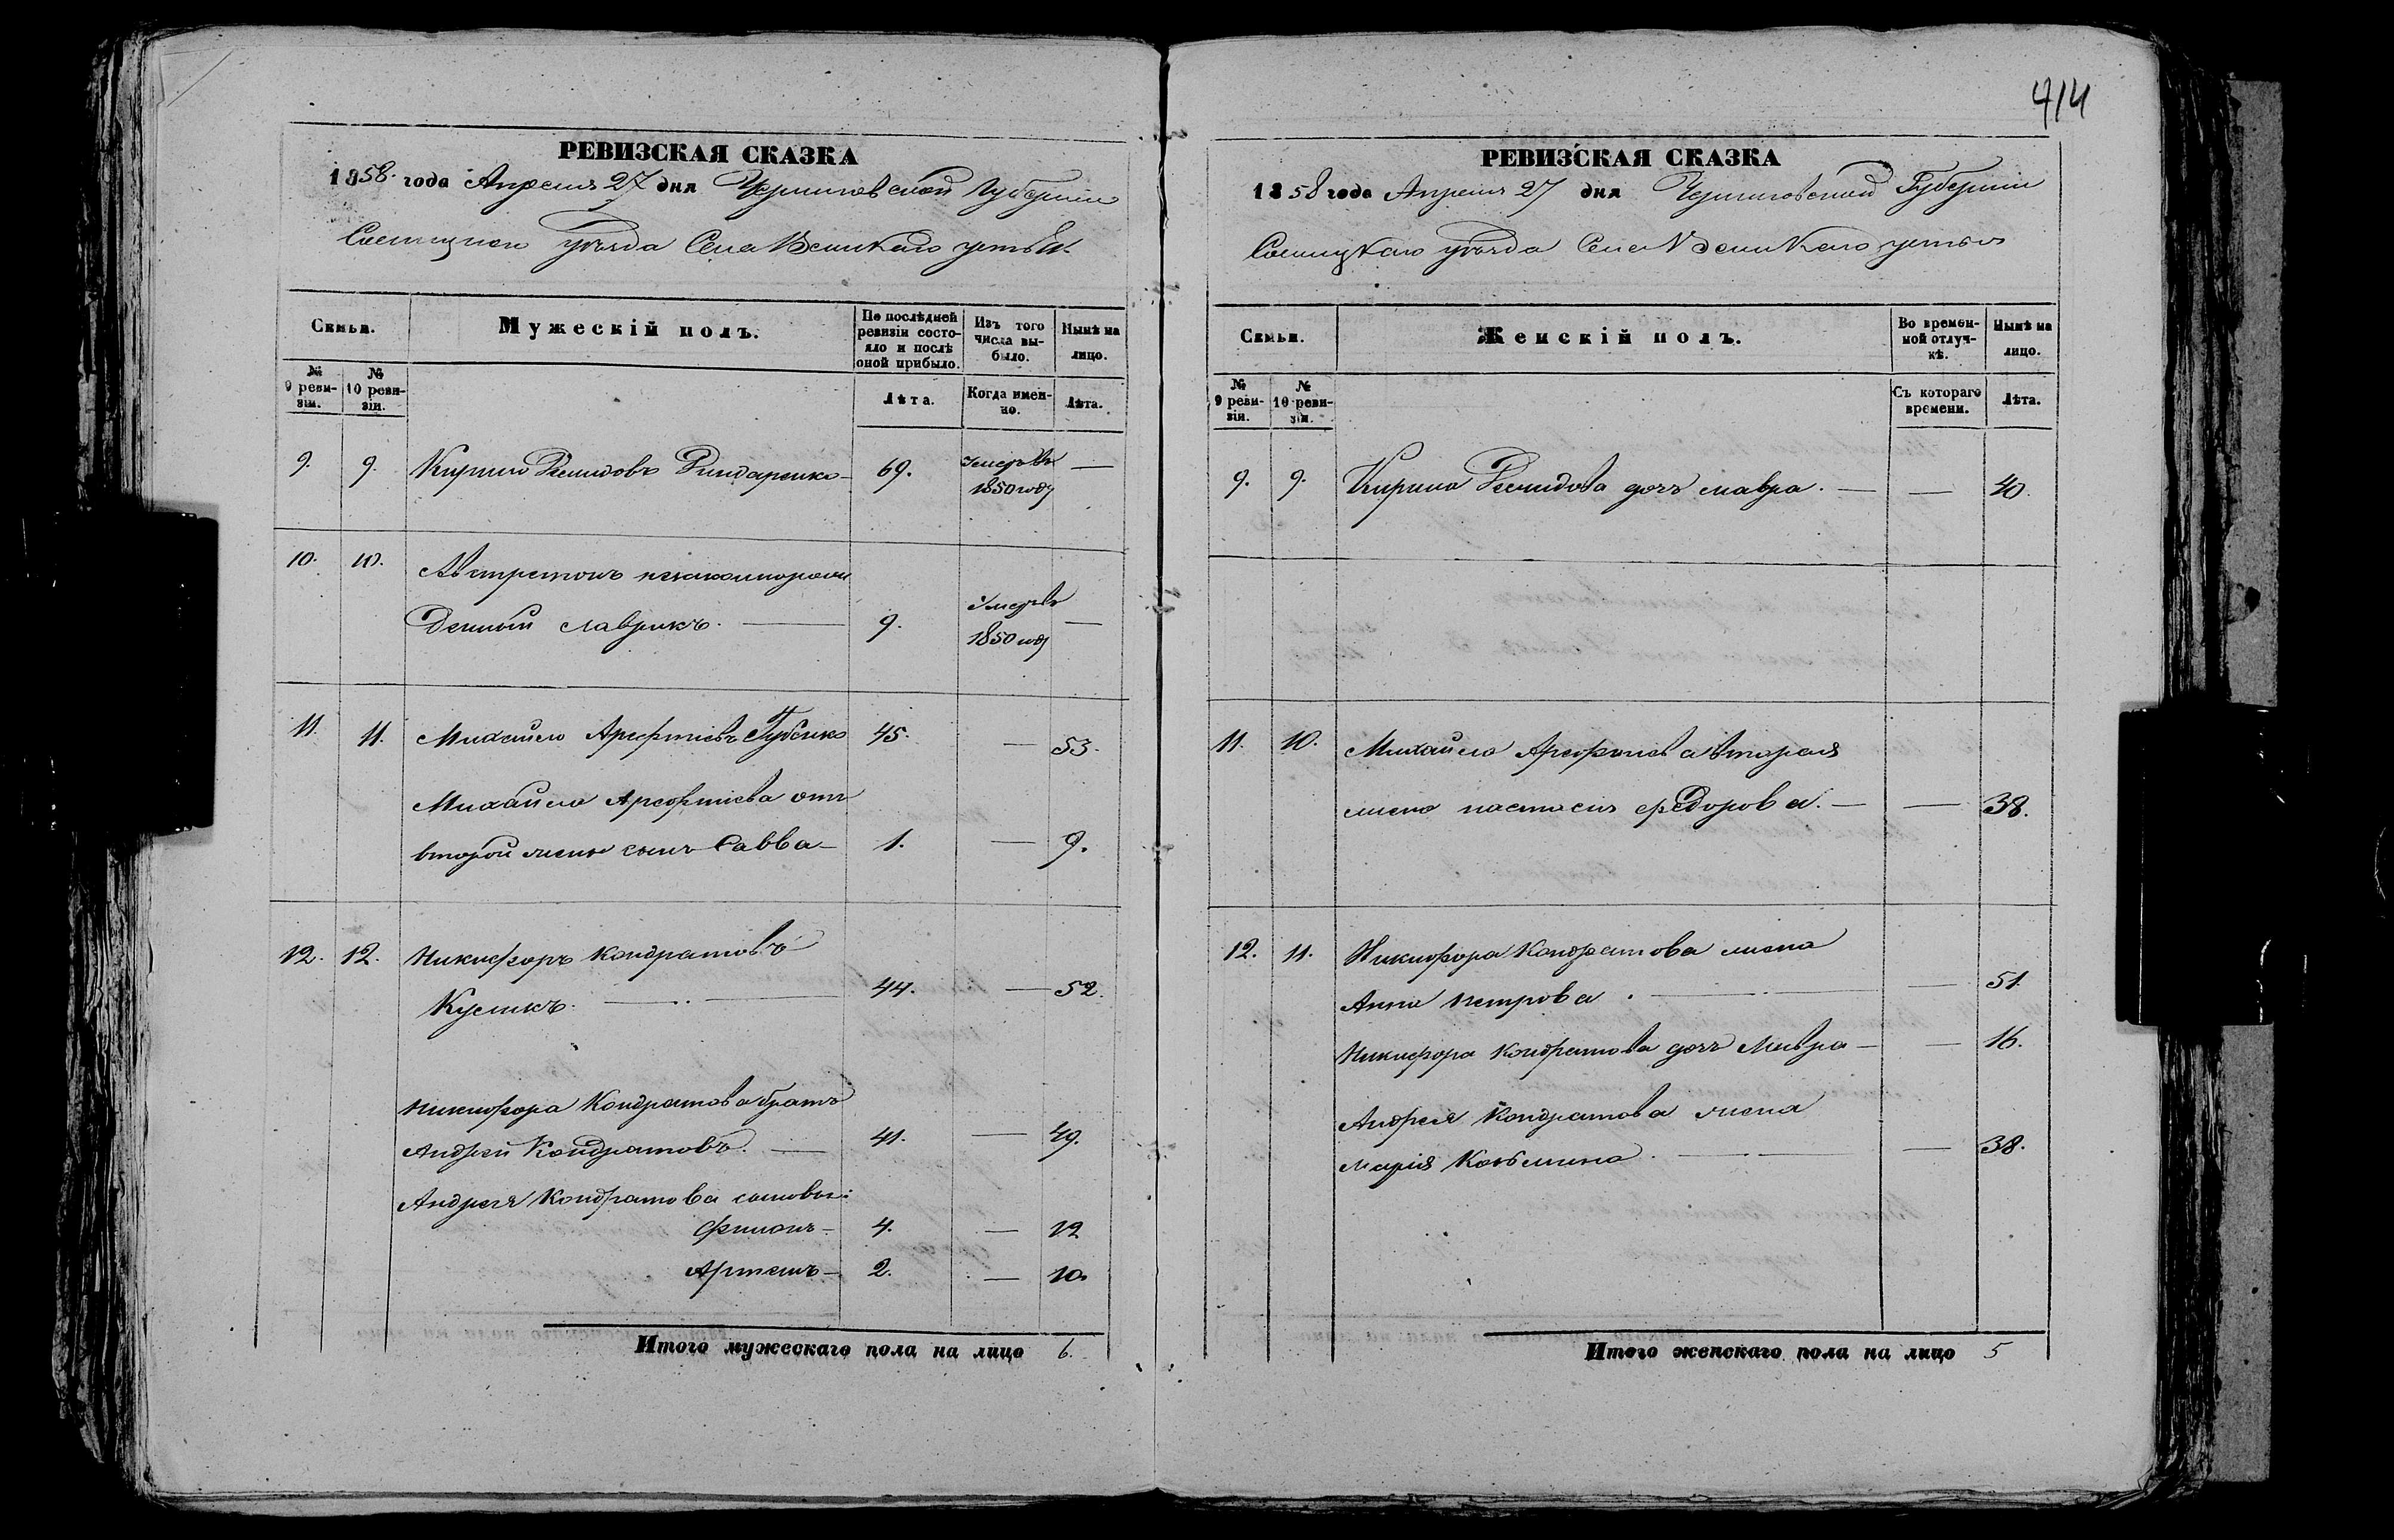 414
РЕВИЗСКАЯ СКАЗКА
1858. года Апреля 27 дня Черниговской Губернии
Сосницкого уѣзда Села Великаго устья.
Семьи.
Мужескій полъ.
По послѣдней ревизіи состояло и послѣ оной прибыло.
Изъ того числа выбыло.
Нынѣ на лицо.
№ 9 ревизіи.
№ 10 ревизіи.
Лѣта.
Когда именно.
Лѣта.
9. 9. Кирило Демидовъ 69. умеръ въ —
1850 году
10. 10. Автрстонъ незаконнорож
Денный Лаврикъ. — 9. Умеръ въ —
1850 году
11. 11. Михайло Арефтіевъ Губенко 45. — 53.
Михайло Арефтіева отъ
второй жены сынъ Савва — 1. — 9.
12. 12. Никифоръ Кондратовъ
Куликъ. — 44. — 52.
Никифора Кондратова братъ
Андрей Кондратовъ. — 41. — 49.
Андрея Кондратова сыновья:
Филонъ — 4. — 12
Артемъ — 2. — 10.
Итого мужескаго пола на лицо 6.
РЕВИЗСКАЯ СКАЗКА
1858 года Апреля 27 дня Черниговской Губернии
Сосницкаго уѣзда Села Великаго устья
Семьи.
Женскій полъ.
Во временной отлучкѣ.
Нынѣ на лицо.
№ 9 ревизіи.
№ 10 ревизіи.
Съ котораго времени.
Лѣта.
9. 9. Кирила Демидова дочъ Мавра. — — 40.
11. 10. Михайла Арефтіева вторая
жена Настасія Федорова. — — 38.
12. 11. Никифора Кондратова жена
Анна Петрова. — — 51.
Никифора Кондратова дочъ Мавра — — 16.
Андрея Кондратова жена
Марія Козьмина. — — 38.
Итого женскаго пола на лицо 5